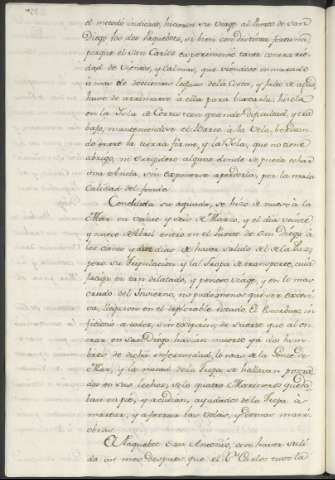 el metodo indicado, hicieron su viage al Puerto de San
Diego los dos Paquebotes, si bien con distinta fortuna,
porque el San Carlos experimentó tanta contrarie
dad de Vientos, y Calmas, que viendose enmarado
à mas de doscientas leguas de la Costa, y falto de agua,
huvo de arrimarse à ella para buscarla: hizola
en la Isla de Cerros con grande dificultad, y tra
bajo, manteniendose el Barco à la Vela, bordean
do entre la tierra firme, y la Isla, que no tiene
abrigo, ni surgidero alguno donde se pueda echar
una Ancla, sin exponerse à perderla, por la mala
calidad del fondo.
Concluida su aguada, se hizo de nuevo à la
Mar en veinte y seis de Marzo, y el dia veinte
y nueve de Abril entró en el Puerto de San Diego à
los ciento y diez dias de haver salido del de la Paz;
pero su Tripulacion, y la Tropa de transporte, cuia
fatiga en tan dilatado, y penoso viage, y en lo mas
crudo del Invierno, no podia menos que ser excesi
va, llegaron en el mas infeliz estado. El Escorbuto in
ficionó à todos, sin excepcion; de suerte que al en
trar en San Diego havian muerto yà dos hom
bres de dicha enfermedad, lo mas de la Gente de
Mar, y la mitad de la Tropa se hallaban postrados
en sus lechos, solo quatro Marineros queda
ban en pie, y acudian, ayudados de la Tropa à
marear, y aferrar las Velas, y demas mani
obras.
El Paquebot San Antonio, con haver sali
do un mes despues que el Sn. Carlos tuvo la